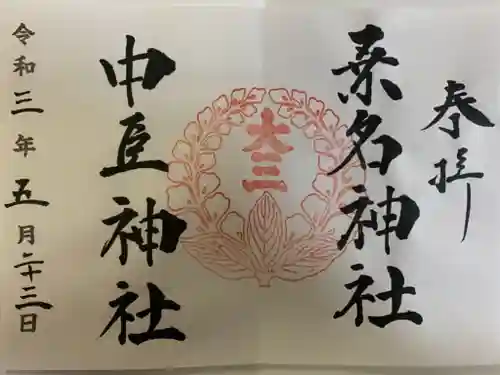 奉拝
桑名神社
大三
中臣神社
令和三年五月二十三日